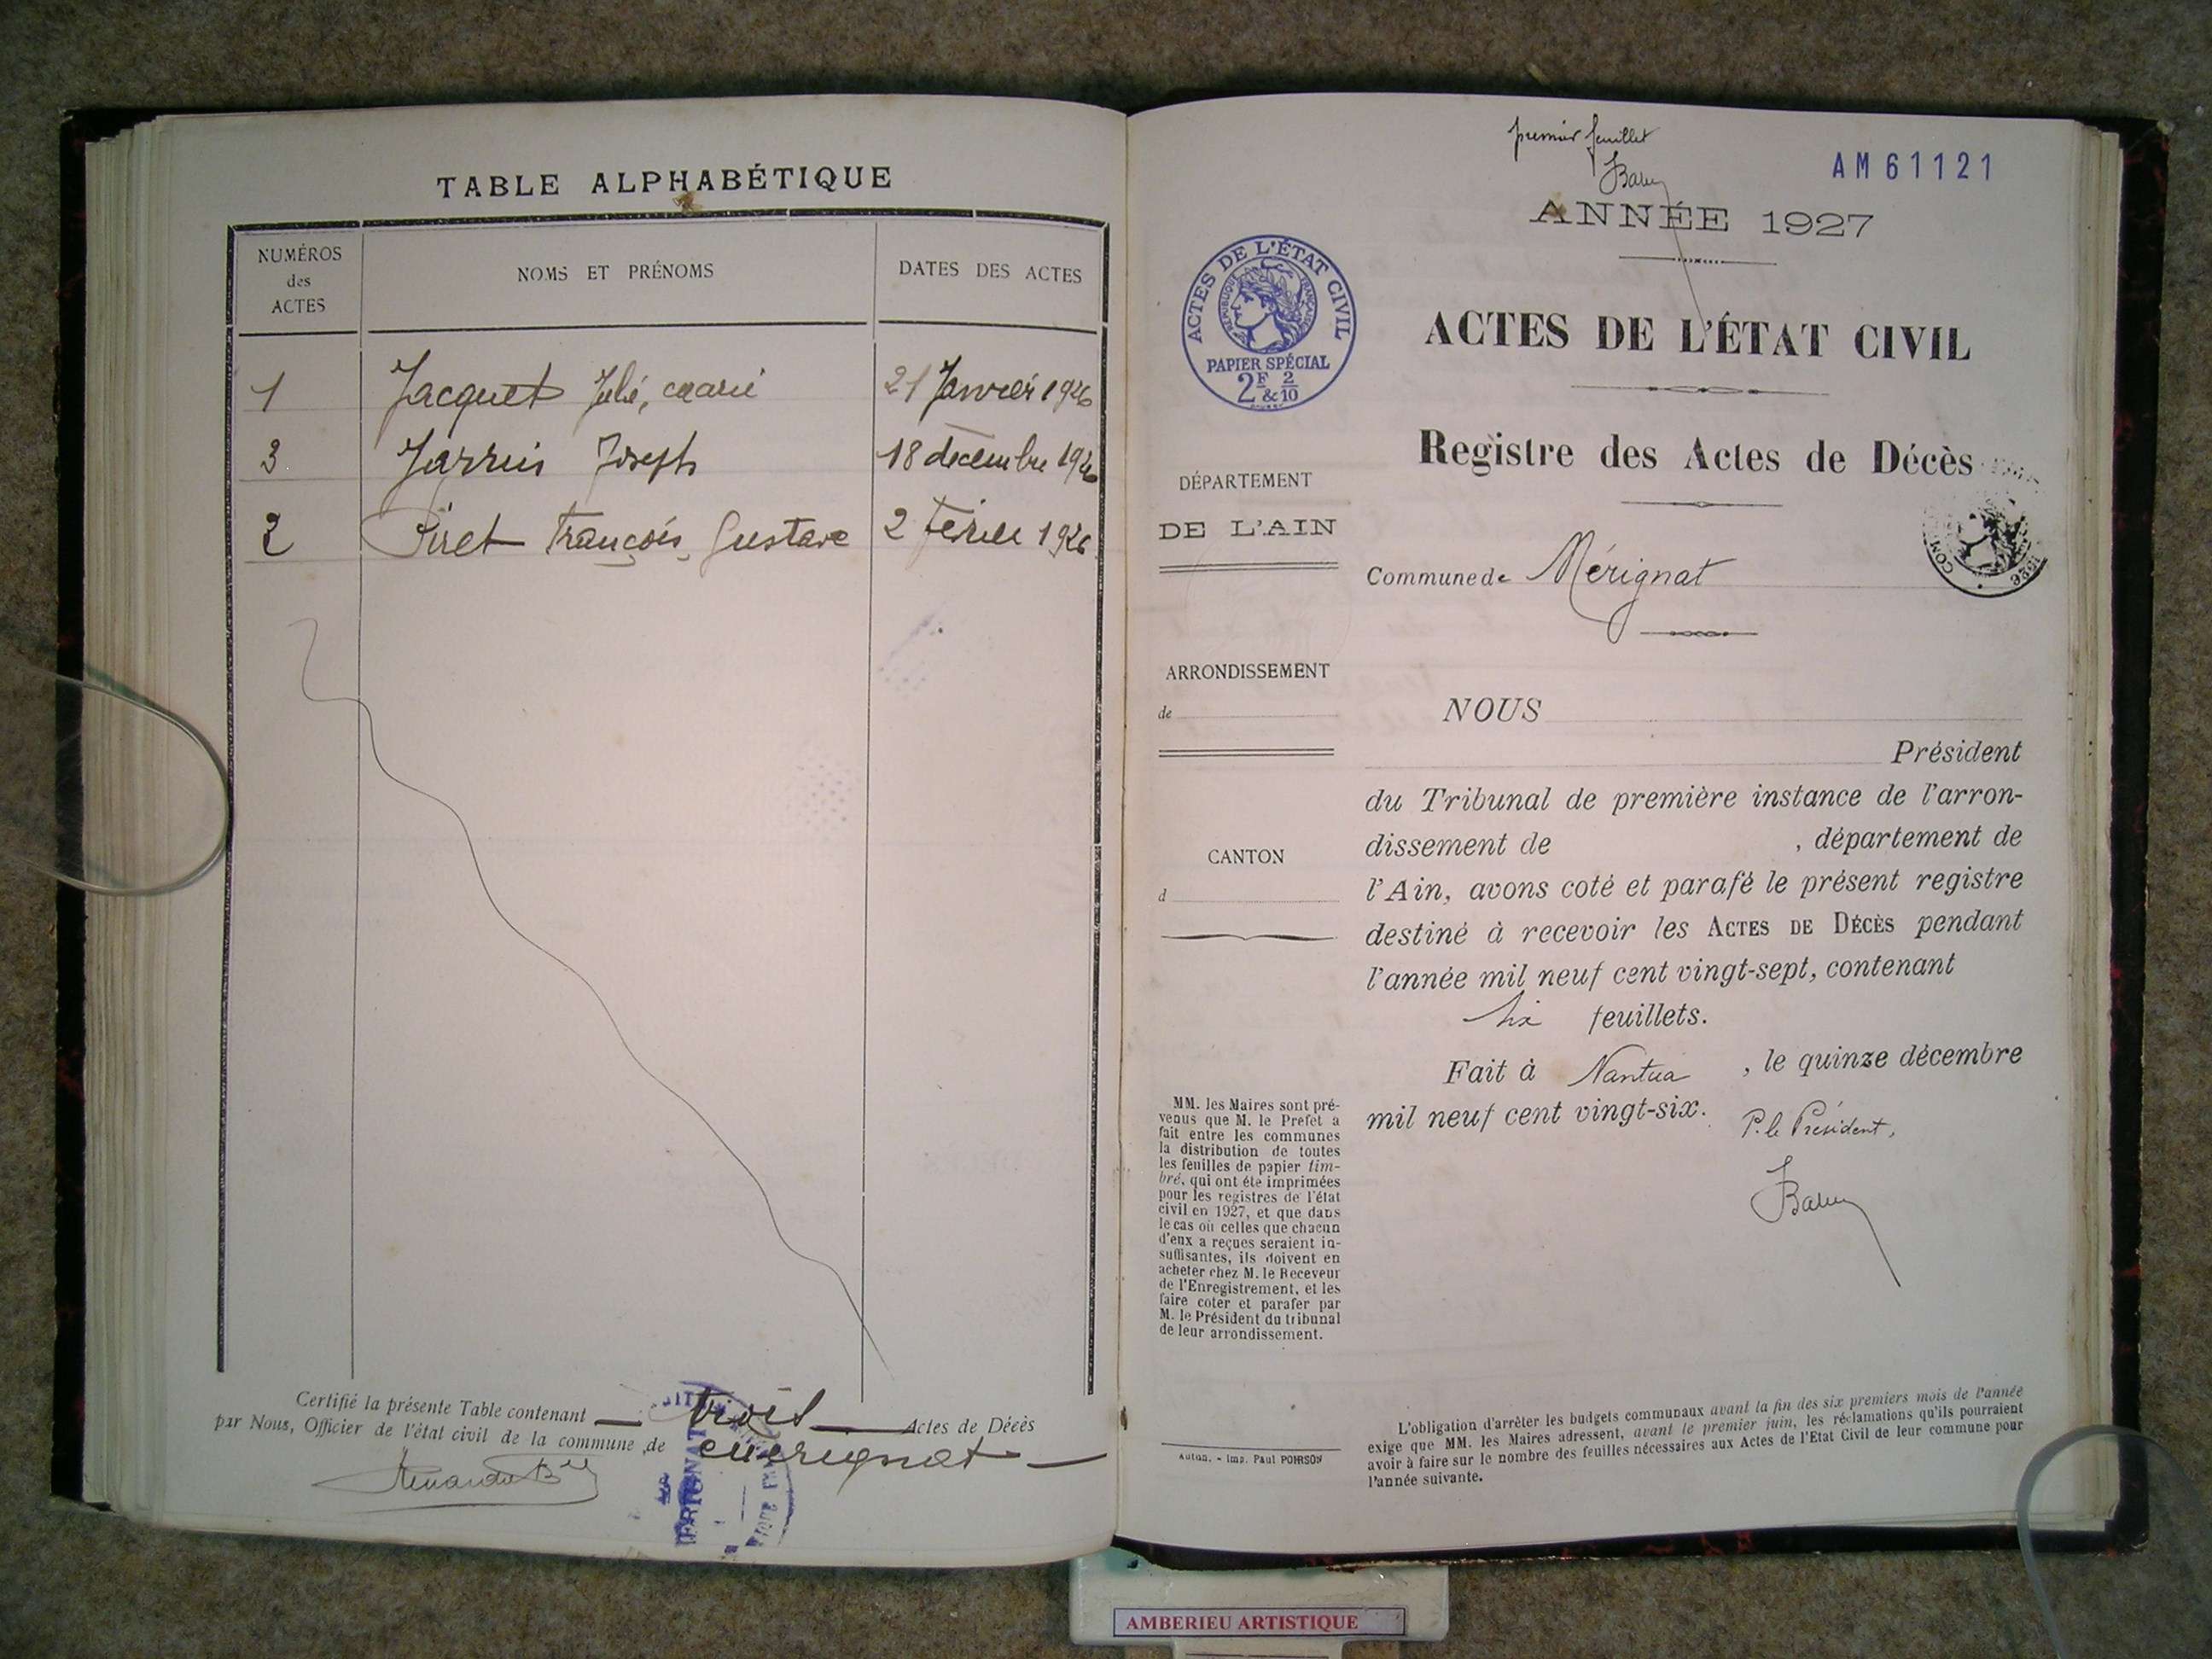 TABLE ALPHABÉTIQUE
NUMÉROS
des
ACTES
NOMS ET PRÉNOMS
DATES DES ACTES
1 Jacquet Julie, Marie 21 Janvier 1926
3 Joseph 18 decembre 1926
2 Piret François, Gustave 2 Février 1926
Certifié la présente Table contenant trois Actes de Décès
par Nous, Officier de l'état civil de la commune de Mérignat
premier feuillet
AM 61121
ANNÉE 1927
ACTES DE L'ÉTAT CIVIL
RÉPUBLIQUE FRANÇAISE
PAPIER SPÉCIAL
2F & 2/10
ACTES DE L'ÉTAT CIVIL
Registre des Actes de Décès
DÉPARTEMENT
DE L'AIN
Commune de Mérignat
ARRONDISSEMENT
de
CANTON
d
NOUS
Président
du Tribunal de première instance de l'arron-
dissement de , département de
l'Ain, avons coté et parafé le présent registre
destiné à recevoir les ACTES DE DÉCÈS pendant
l'année mil neuf cent vingt-sept, contenant
six feuillets.
Fait à Nantua , le quinze décembre
mil neuf cent vingt-six.
P. le Président,
MM. les Maires sont pré-
venus que M. le Prefet a
fait entre les communes
la distribution de toutes
les feuilles de papier tim-
bré, qui ont été imprimées
pour les registres de l'état
civil en 1927, et que dans
le cas où celles que chacun
d'eux a reçues seraient in-
suffisantes, ils doivent en
acheter chez M. le Receveur
de l'Enregistrement, et les
faire coter et parafer par
M. le Président du tribunal
de leur arrondissement.
Autun. - Imp. Paul POIRSON
L'obligation d'arrêter les budgets communaux avant la fin des six premiers mois de l'année
exige que MM. les Maires adressent, avant le premier juin, les réclamations qu'ils pourraient
avoir à faire sur le nombre des feuilles nécessaires aux Actes de l'Etat Civil de leur commune pour
l'année suivante.
AMBERIEU ARTISTIQUE